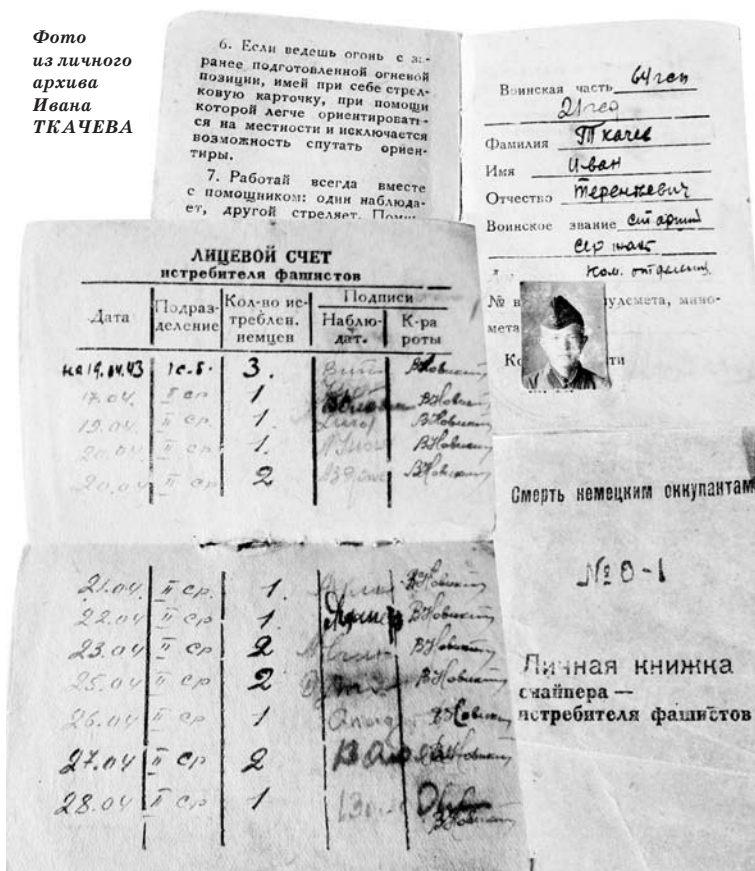 Фото
из личного
архива
Ивана
ТКАЧЕВА
6. Если ведешь огонь с за-
ранее подготовленной огневой
позиции, имей при себе стрел-
ковую карточку, при помощи
которой легче ориентировать-
ся на местности и исключается
возможность спутать ориен-
тиры.
7. Работай всегда вместе
с помощником: один наблюда-
ет, другой стреляет.
Воинская часть 64 гсп
21 гсд
Фамилия Ткачев
Имя Иван
Отчество Терентевич
Воинское звание старший
сержант
Ком. отделения
№
улемета, мино-
мета
ЛИЦЕВОЙ СЧЕТ
истребителя фашистов
Дата Подраз-деление Кол-во ис-треблен. немцев Подписи Наблю-дат. К-ра роты
на 19.04.43 1 с.б. 3. ВНовикат
17.04. II ср 1 ВНовикат
19.04 II ср 1. ВНовикат
20.04 II ср 1. ВНовикат
20.04 II ср 2 ВНовикат
21.04. II ср. 1. ВНовикат
22.04 II ср 1. ВНовикат
23.04 II ср 2 ВНовикат
25.04 II ср 2 ВНовикат
26.04 II ср 1 ВНовикат
27.04 II ср 2 ВНовикат
28.04 II ср 1 ВНовикат
Смерть немецким оккупантам
№ 0-1
Личная книжка
снайпера —
истребителя фашистов